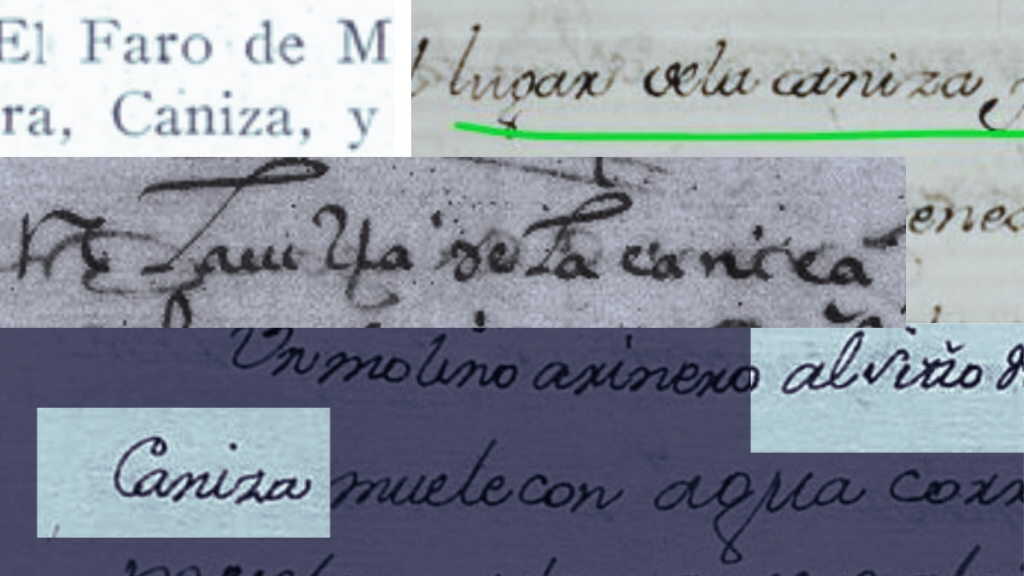 El Faro de M
ra, Caniza, y
lugar dela caniza,
la Villa de La canica
enec
Un molino arinero al sitio d
Caniza muele con agua corr